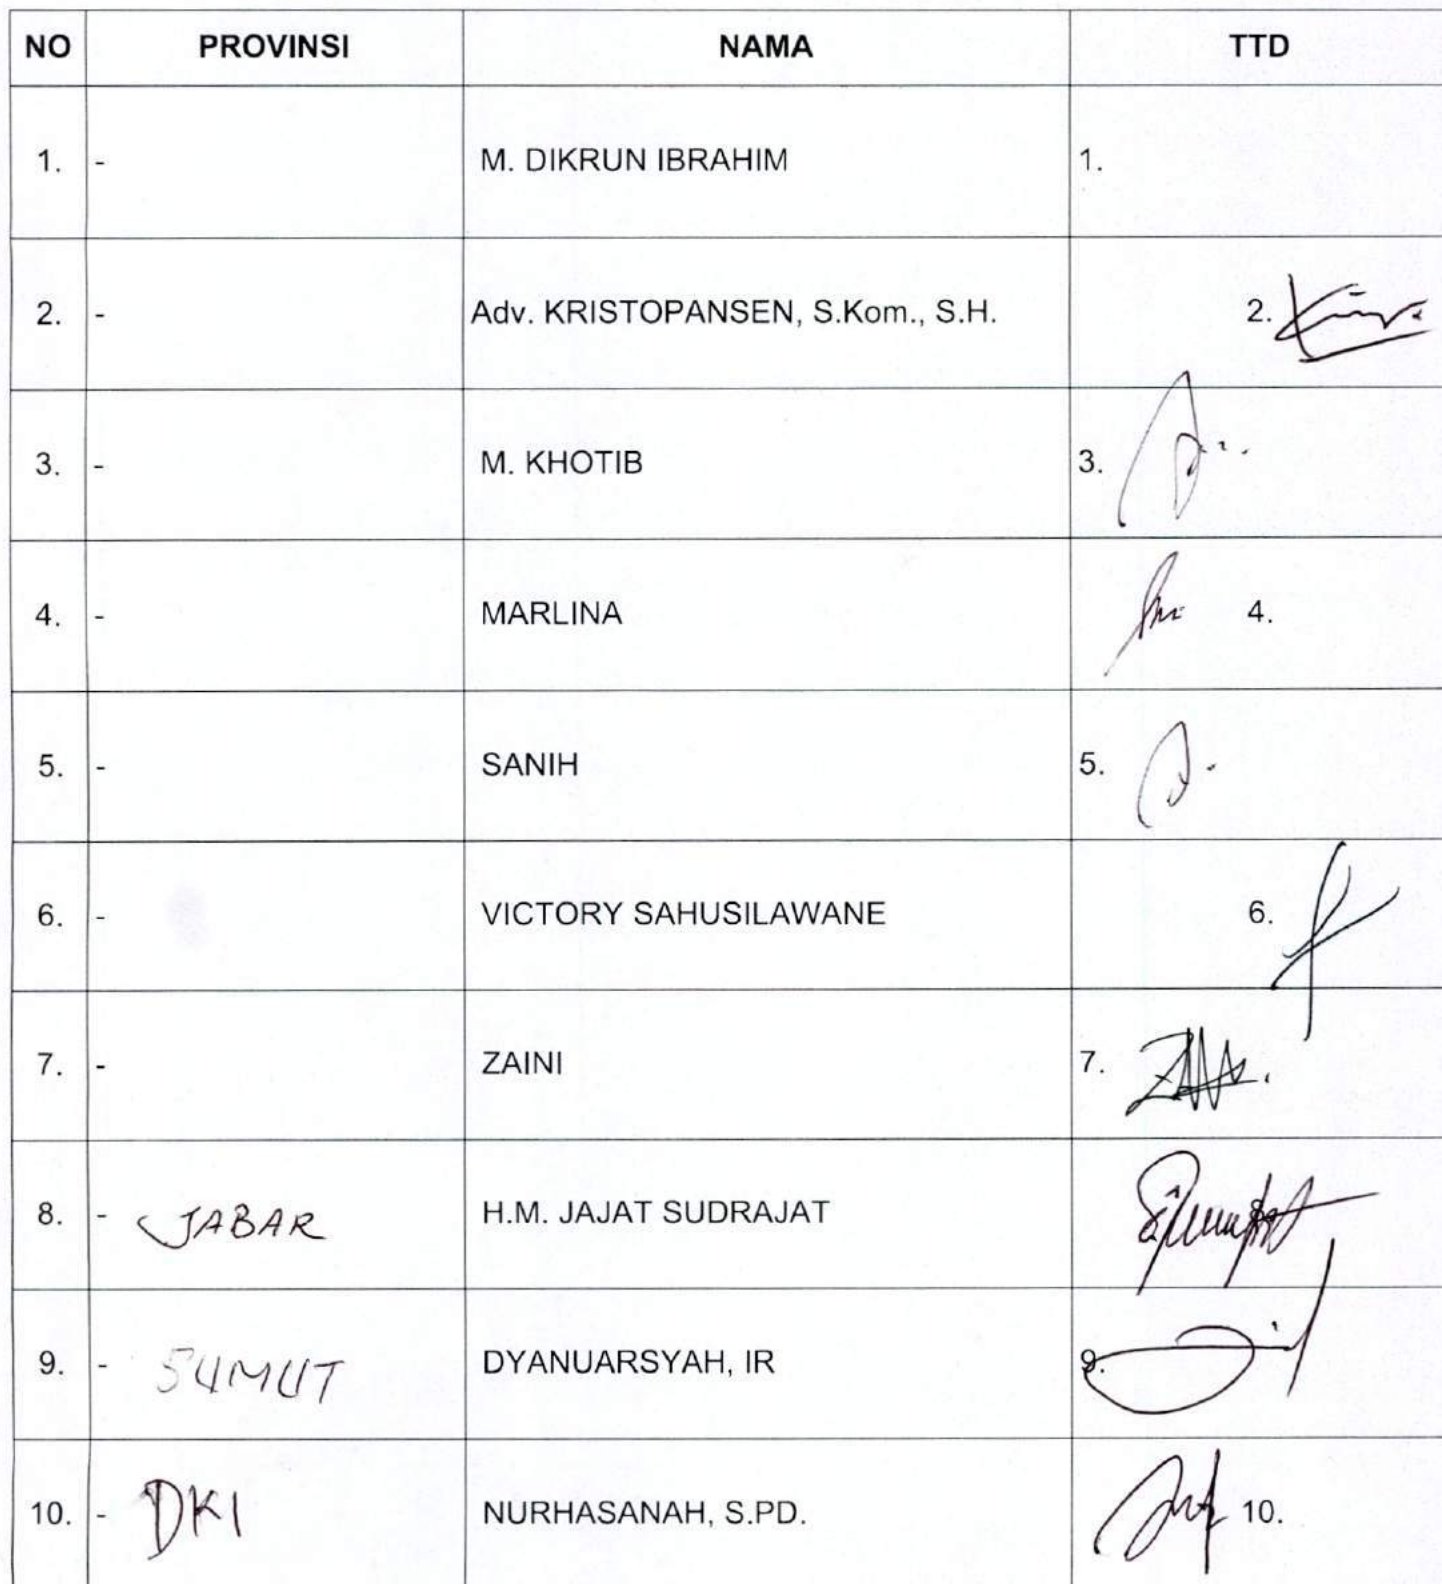 NO PROVINSI NAMA TTD
1. - M. DIKRUN IBRAHIM 1.
2. - Adv. KRISTOPANSEN, S.Kom., S.H. 2.
3. - M. KHOTIB 3.
4. - MARLINA 4.
5. - SANIH 5.
6. - VICTORY SAHUSILAWANE 6.
7. - ZAINI 7.
8. - JABAR H.M. JAJAT SUDRAJAT 8.
9. - SUMUT DYANUARSYAH, IR 9.
10. - DKI NURHASANAH, S.PD. 10.